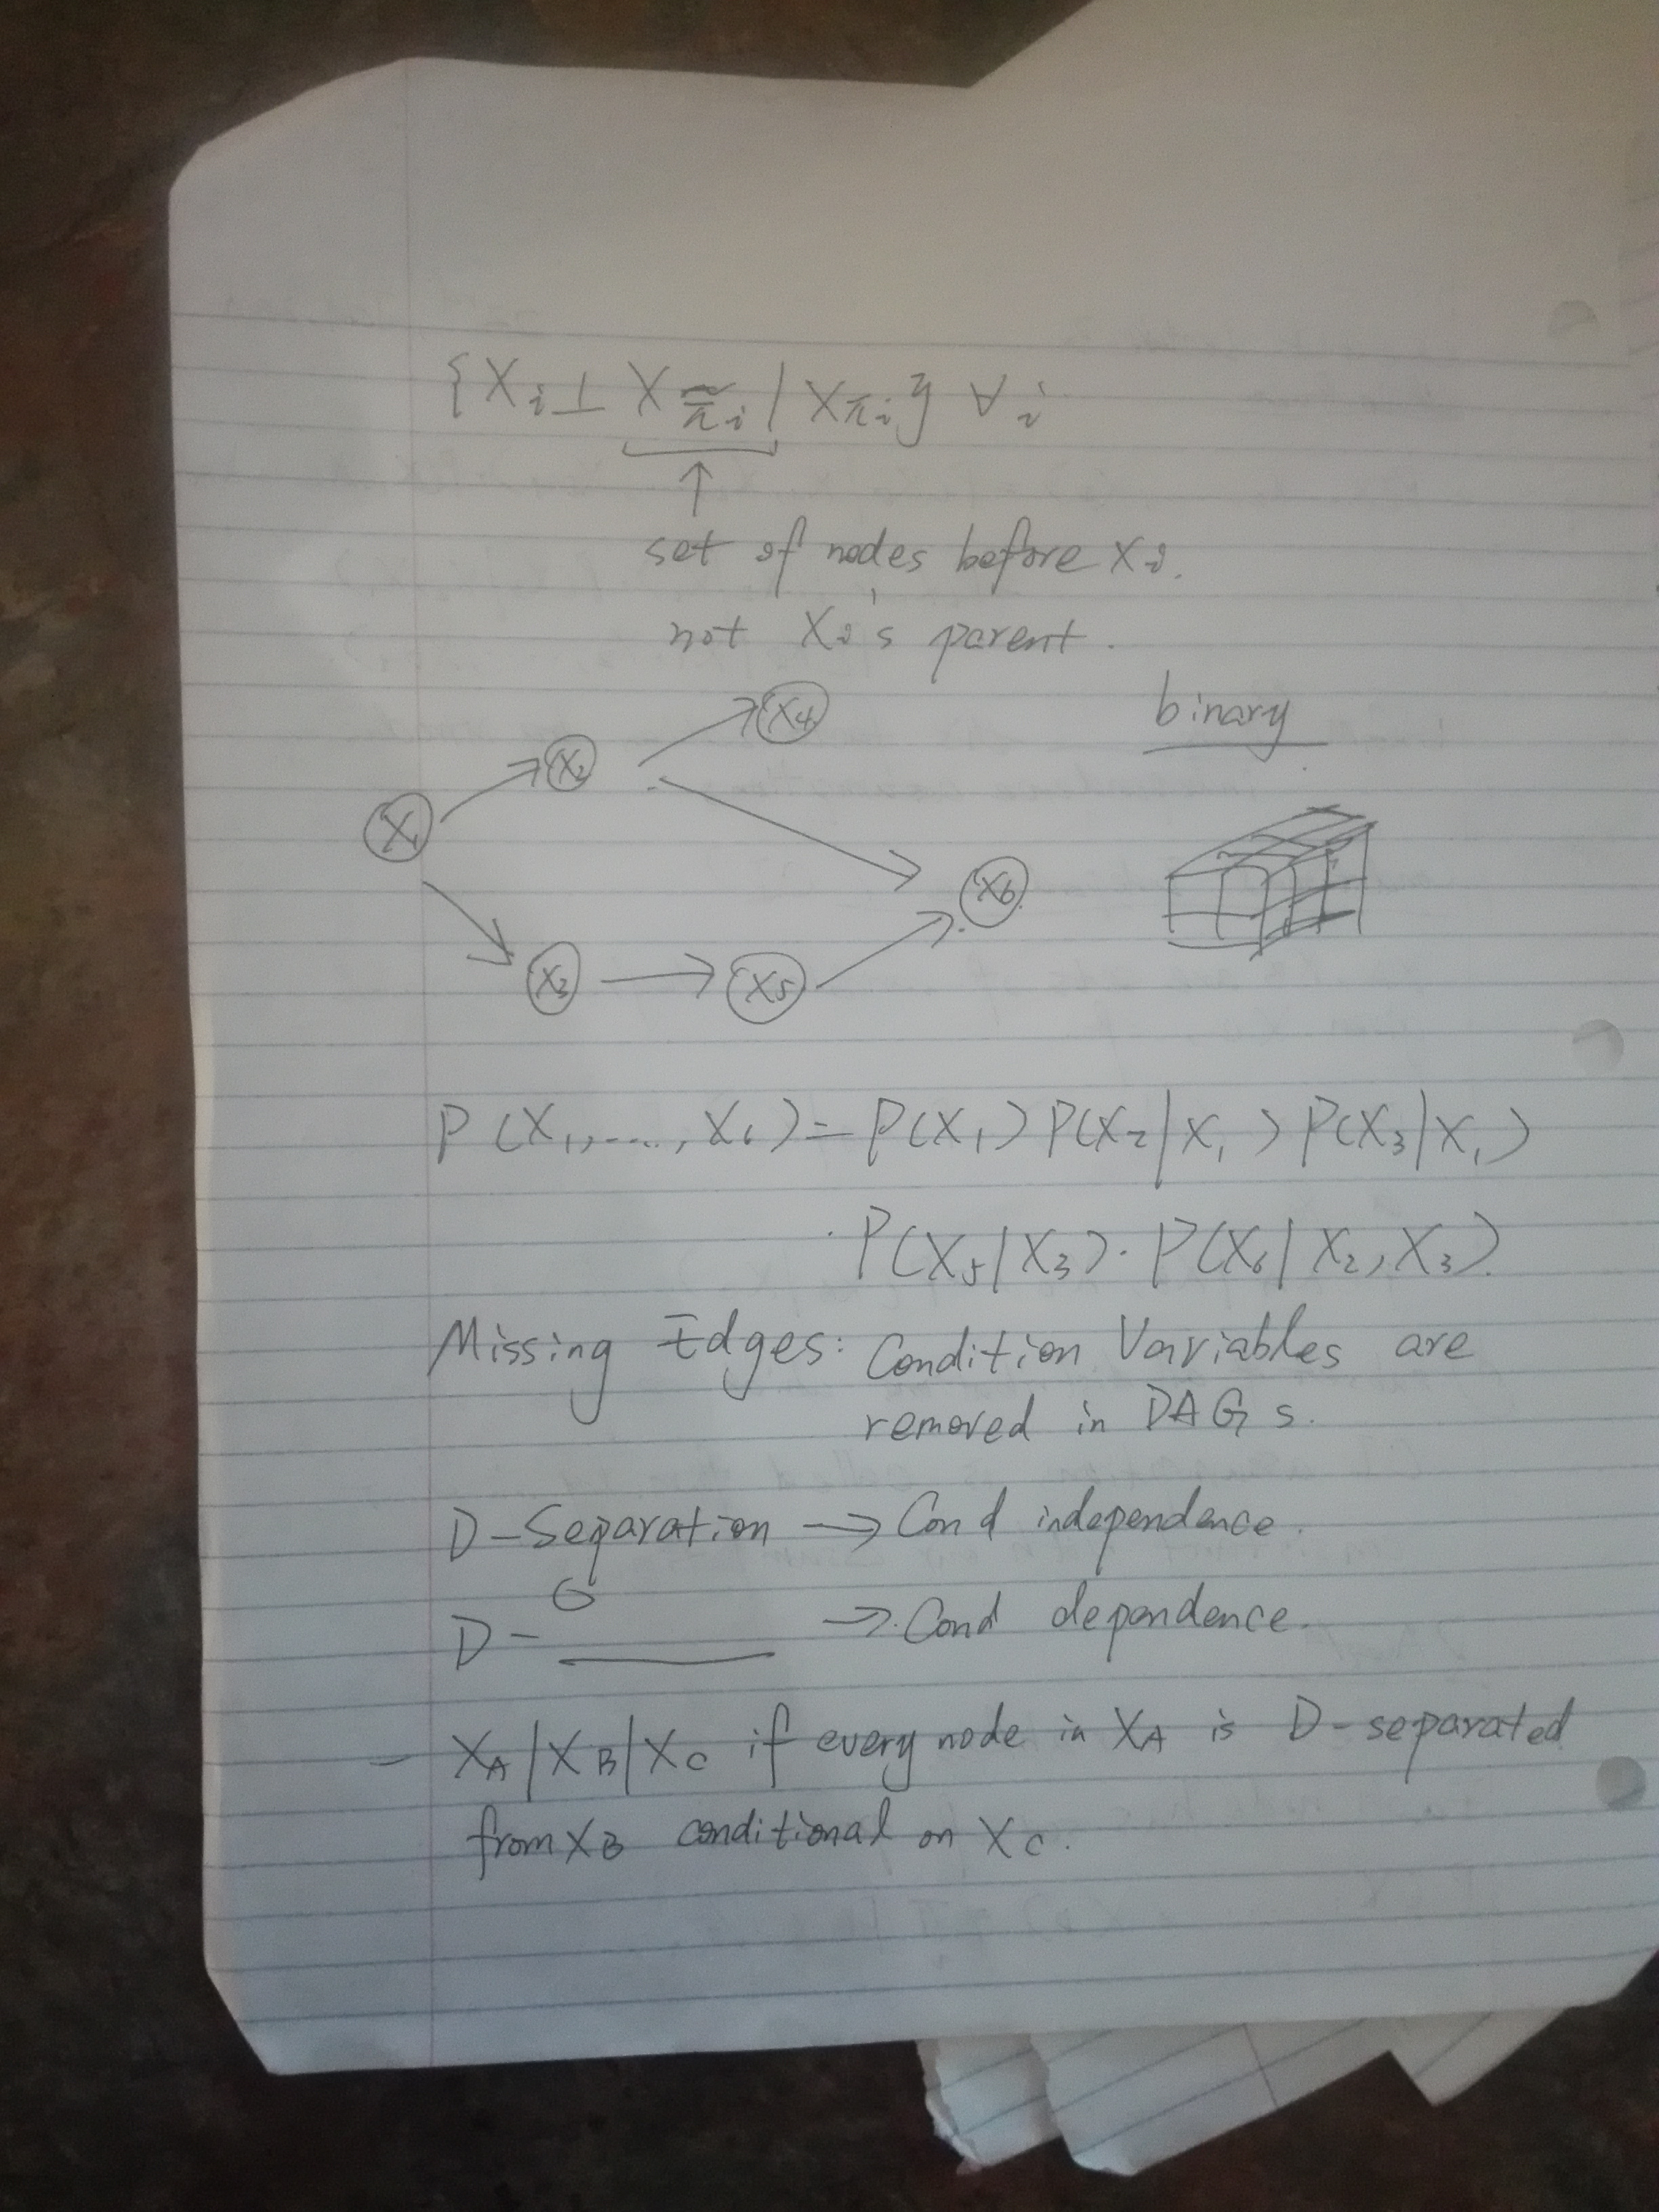 {Xᵢ ⊥ X_π̃ᵢ | X_πᵢ} ∀ᵢ
↑
set of nodes before Xᵢ.
not Xᵢ's parent.
X₄
binary
X₂
X₁
X₆
X₃
X₅
P(X₁,...., X₆) = P(X₁) P(X₂|X₁) P(X₃|X₁)
· P(X₅|X₃) · P(X₆|X₂, X₃).
Missing Edges: Condition Variables are
removed in DAGs.
D-Separation → Cond independence.
D-______ → Cond dependence.
- X_A | X_B | X_C if every node in X_A is D-separated
from X_B conditional on X_C.